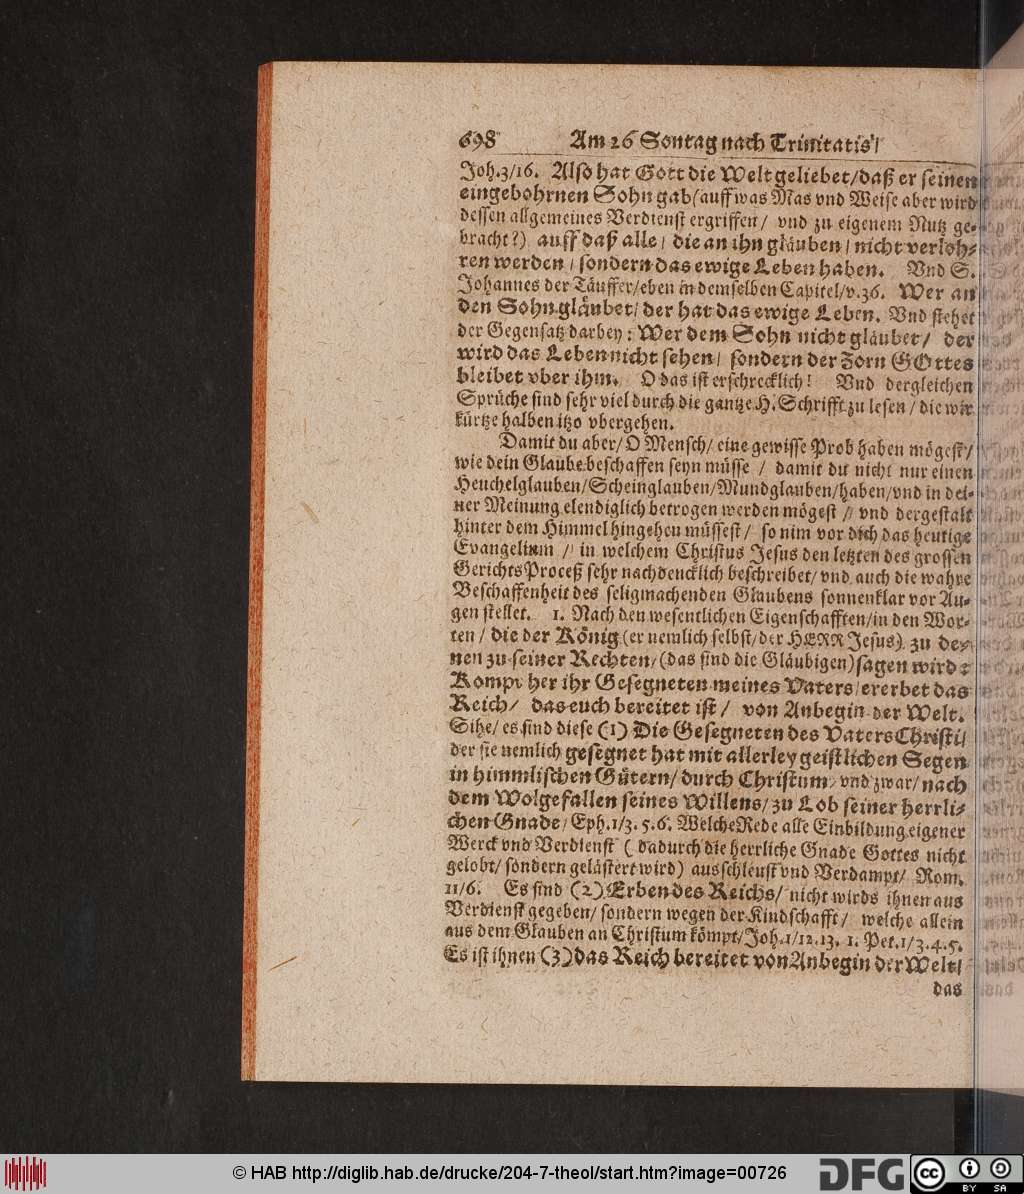 698 Am 26 Sontag nach Trinitatis/
Joh.3/16. Also hat Gott die Welt geliebet/daß er seinen
eingebohrnen Sohn gab(auff was Mas vnd Weise aber wird
dessen allgemeines Verdienst ergriffen/ vnd zu eigenem Nutz ge-
bracht?) auff daß alle/ die an ihn gläuben/ nicht verloh-
ren werden/ sondern das ewige Leben haben. Vnd S.
Johannes der Täuffer/eben in demselben Capitel/v.36. Wer an
den Sohn gläubet/ der hat das ewige Leben. Vnd stehet
der Gegensatz darbey: Wer dem Sohn nicht gläubet/ der
wird das Leben nicht sehen/ sondern der Zorn GOttes
bleibet vber ihm. O das ist erschrecklich! Vnd dergleichen
Sprüche sind sehr viel durch die gantze H. Schrifft zu lesen/ die wir
kürtze halben itzo vbergehen.
Damit du aber/ O Mensch/ eine gewisse Prob haben mögest/
wie dein Glaube beschaffen seyn müsse/ damit du nicht nur einen
Heuchelglauben/Scheinglauben/Mundglauben/haben/vnd in dei-
ner Meinung elendiglich betrogen werden mögest/ vnd dergestalt
hinter dem Himmel hingehen müssest/ so nim vor dich das heutige
Evangelium/ in welchem Christus Jesus den letzten des grossen
Gerichts Proceß sehr nachdencklich beschreibet/ vnd auch die wahre
Beschaffenheit des seligmachenden Glaubens sonnenklar vor Au-
gen stellet. 1. Nach den wesentlichen Eigenschafften/in den Wor-
ten/ die der König (er nemlich selbst/der HERR Jesus) zu de-
nen zu seiner Rechten/(das sind die Gläubigen) sagen wird:
Kompt her ihr Gesegneten meines Vaters/ererbet das
Reich/ das euch bereitet ist/ von Anbegin der Welt.
Sihe/ es sind diese (1) Die Gesegneten des Vaters Christi/
der sie nemlich gesegnet hat mit allerley geistlichen Segen
in himmlischen Gütern/ durch Christum/ vnd zwar/ nach
dem Wolgefallen seines Willens/ zu Lob seiner herrli-
chen Gnade/ Eph.1/3.5.6. Welche Rede alle Einbildung eigener
Werck vnd Verdienst (dadurch die herrliche Gnade Gottes nicht
gelobt/ sondern gelästert wird) ausschleust vnd Verdampt/ Rom.
11/6. Es sind (2) Erben des Reichs/ nicht wirds ihnen aus
Verdienst gegeben/ sondern wegen der Kindschafft/ welche allein
aus dem Glauben an Christum kömpt/Joh.1/12.13. 1. Pet.1/3.4.5.
Es ist ihnen (3) das Reich bereitet von Anbegin der Welt/
das
© HAB http://diglib.hab.de/drucke/204-7-theol/start.htm?image=00726
DFG
cc BY SA